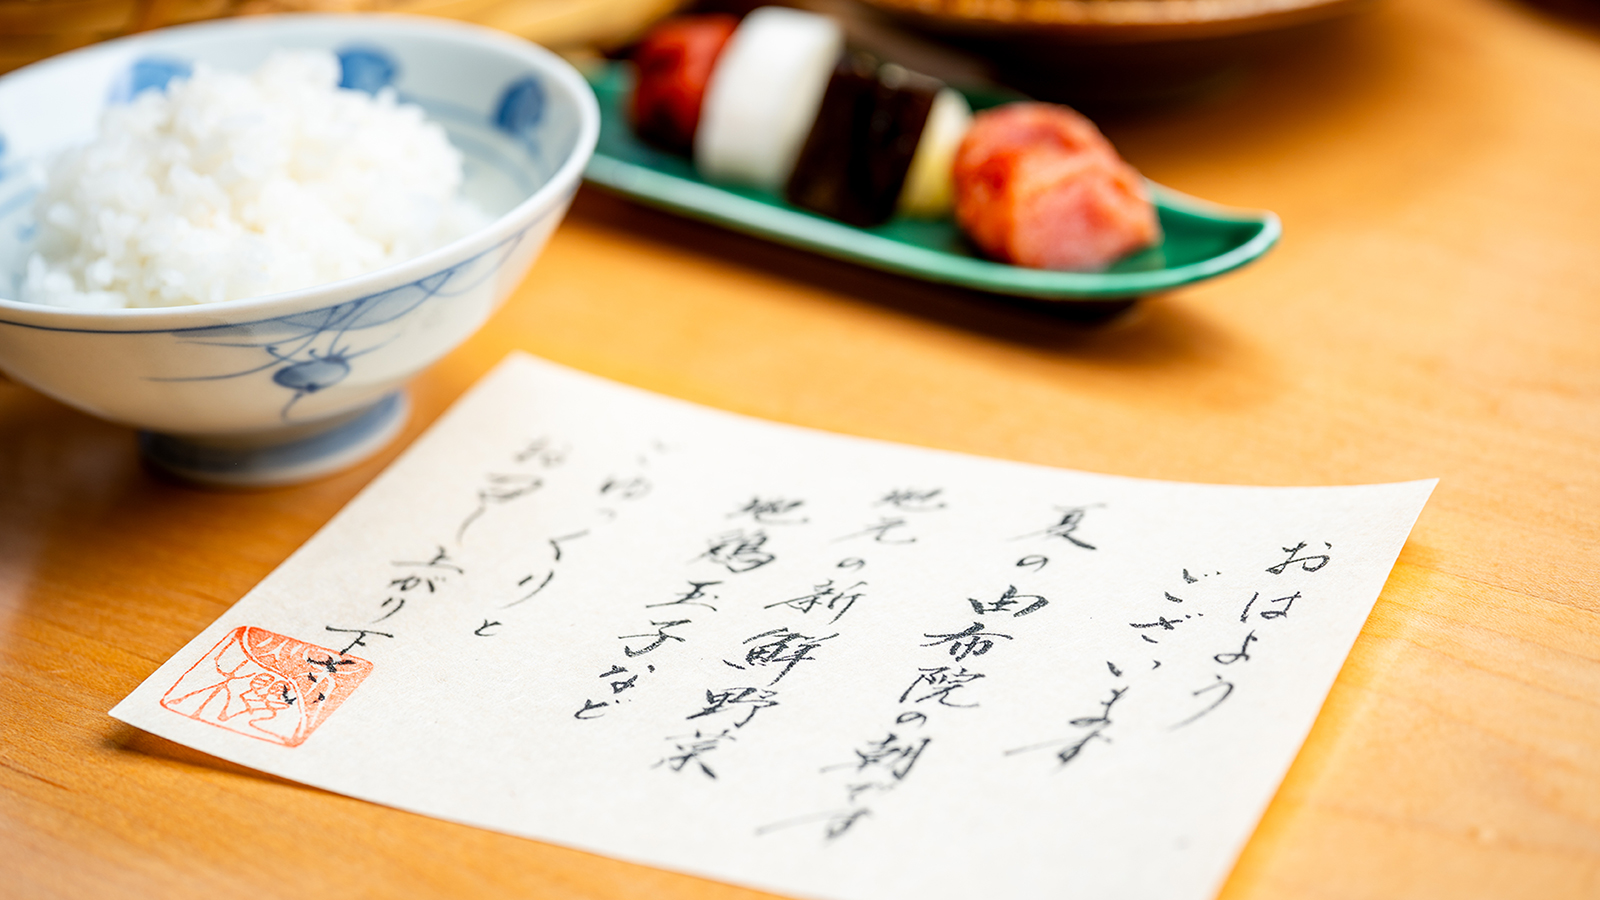 おはよう
ございます
夏の由布院の朝です
地元の新鮮野菜
地鶏玉子など
ごゆっくりと
お召し上がり下さい